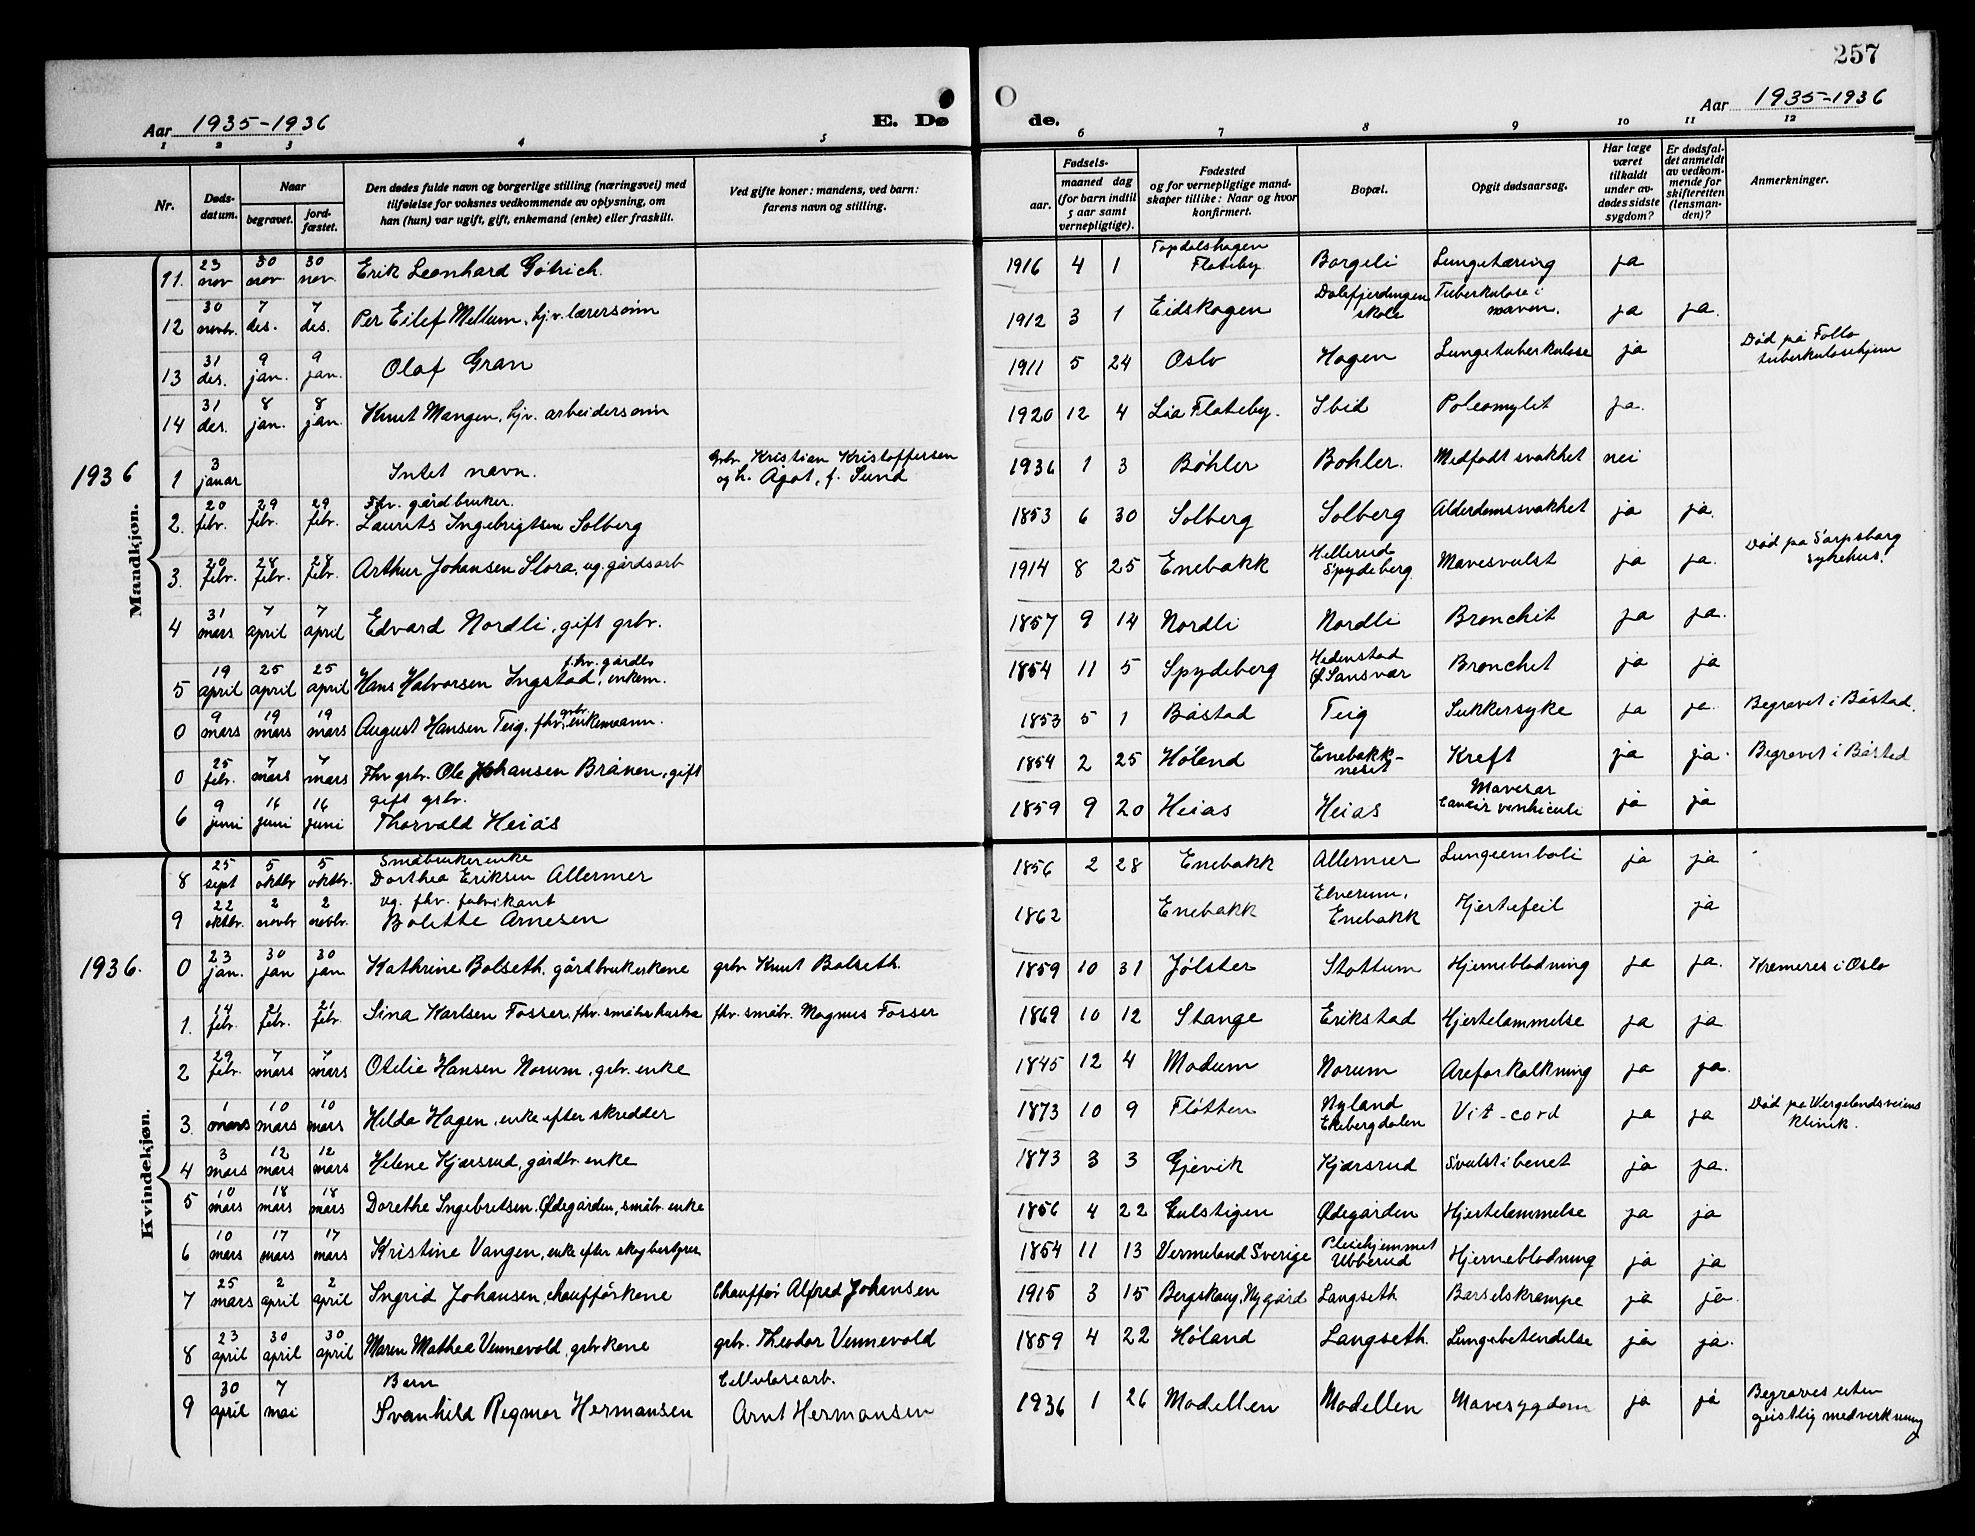 257
Aar 1935-1936
E. Dø
de.
Aar 1935-1936
1 2 3 4 5 6 7 8 9 10 11 12
Nr.
Døds-
datum.
Naar
begravet.
jord-
fæstet.
Den dødes fulde navn og borgerlige stilling (næringsvei) med
tilføielse for voksnes vedkommende av oplysning, om
han (hun) var ugift, gift, enkemand (enke) eller fraskilt.
Ved gifte koner: mandens, ved barn:
farens navn og stilling.
Fødsels-
aar.
maaned dag
(for barn indtil
5 aar samt
vernepligtige).
Fødested
og for vernepligtige mand-
skaper tillike: Naar og hvor
konfirmert.
Bopæl.
Opgit dødsaarsag.
Har læge
været
tilkaldt
under av-
dødes sidste
sygdom?
Er dødsfal-
det anmeldt
av vedkom-
mende for
skifteretten
(lensman-
den)?
Anmerkninger.
Mandkjøn.
11. 23 nov 30 nov. 30 nov. Erik Leonhard Götrich. 1916 4 1 Topdalshagen Flateby. Borgeli Lungetæring ja
12 30 novbr. 7 des. 7 des. Per Eilef Mellum, hjv. lærersønn 1912 3 1 Eidskogen Dalefjerdingen skole Tuberkulose i maven. ja ja.
13 31 des. 9 jan. 9 jan. Olaf Gran 1911 5 24 Oslo Hagen Lungetuberkulose ja Død på Follo tuberkulosehjem
14 31 des. 8 jan. 8 jan. Knut Mangen, hjv. arbeidersønn 1920 12 4 Lia Flateby. Ibid Poleomylit ja.
1936 1 3 januar Intet navn. Grbr. Kristian Kristoffersen og h. Agot, f. Sund 1936 1 3 Bøhler Bøhler. Medfødt svakhet nei
2. 20 febr. 29 febr. 29 febr. Fhv. gårdbruker. Laurits Ingebrigtsen Solberg 1853 6 30 Solberg Solberg Alderdomssvakhet ja ja.
3. 20 febr. 28 febr. 28 febr. Arthur Johansen Slora, ug. gårdsarb 1914 8 25 Enebakk Hellerud Spydeberg. Mavesvulst ja ja. Død på Sarpsborg sykehus.
4 31 mars 7 april 7 april Edvard Nordli, gift grbr. 1857 9 14 Nordli Nordli Bronchit ja ja.
5 19 april 25 april 25 april Hans Halvorsen Ingstad, fhv. gårdbr enkem. 1854 11 5 Spydeberg Hedenstad Ø. Sansvær Bronchit ja ja
0 9 mars 19 mars 19 mars August Hansen Teig, fhv. grbr. enkemann. 1853 5 1 Båstad Teig Sukkersyke ja ja. Begravet i Båstad.
0 25 febr. 7 mars 7 mars Fhv grbr. Ole Johansen Brånen, gift 1854 2 25 Høland Enebakk- neset Kreft ja ja. Begravet i Båstad
6 9 juni 16 juni 16 juni gift grbr. Thorvald Heiås 1859 9 20 Heias Heias Mavesar ja ja
Kvindekjøn.
8 25 sept 5 oktbr 5 oktbr. Småbrukerenke Dorthea Eriksen Allermer 1856 2 28 Enebakk Allermer Lungeemboli ja ja
9 22 oktbr. 2 novbr 2 novbr. ug. fhv. fabrikant Bolette Arnesen 1862 Enebakk Elverum, Enebakk Hjertefeil ja
1936. 0 23 jan. 30 jan 30 jan Kathrine Bolseth, gårdbrukerkone grbr Knut Bolseth. 1859 10 31 Jølster Stottum Hjerneblødning ja ja. Kremeres i Oslo
1. 14 febr. 21 febr. 21 febr. Sina Karlsen Fosser, fhv. småbr.hustru fhv. småbr. Magnus Fosser 1869 10 12 Stange Erikstad Hjertelammelse ja ja
2 29 febr. 7 mars 7 mars Otelie Hansen Norum, grbr. enke 1845 12 4 Modum Norum Areforkalkning ja ja.
3. 1 mars 10 mars 10 mars Hilda Hagen, enke efter skredder 1873 10 9 Fløtten Nyland Ekebergdalen Vit-cord ja ja Død på Wergelandsveiens klinik.
4 3 mars 12 mars 12 mars Helene Kjærsrud, gårdbr. enke 1873 3 3 Gjøvik Kjærsrud Svulst i benet ja ja.
5 10 mars 18 mars 18 mars Dorethe Ingebretsen Ødegården, småbr. enke 1856 4 22 Gulstigen Ødegården Hjertelammelse ja ja
6 10 mars 17 mars 17 mars Kristine Vangen, enke efter skogbestyrer 1854 11 13 Vermeland Sverige Pleiehjemmet Ubberud Hjerneblødning ja ja
7 25 mars 2 april 2 april Ingrid Johansen, chaufførkone Chauffør Alfred Johansen 1915 3 15 Bergskaug, Nygård Langseth Barselskrampe ja ja.
8 23 april 30 april 30 april Maren Mathea Vennevold, grbrkone grbr. Theodor Vennevold 1859 4 22 Høland Langseth. Lungebetendelse ja ja.
9 30 april 7 mai Barn Svanhild Regmor Hermansen Cellulosearb. Arnt Hermansen 1936 1 26 Modellen Modellen Mavesygdom ja ja Begraves uten geistlig medverkning